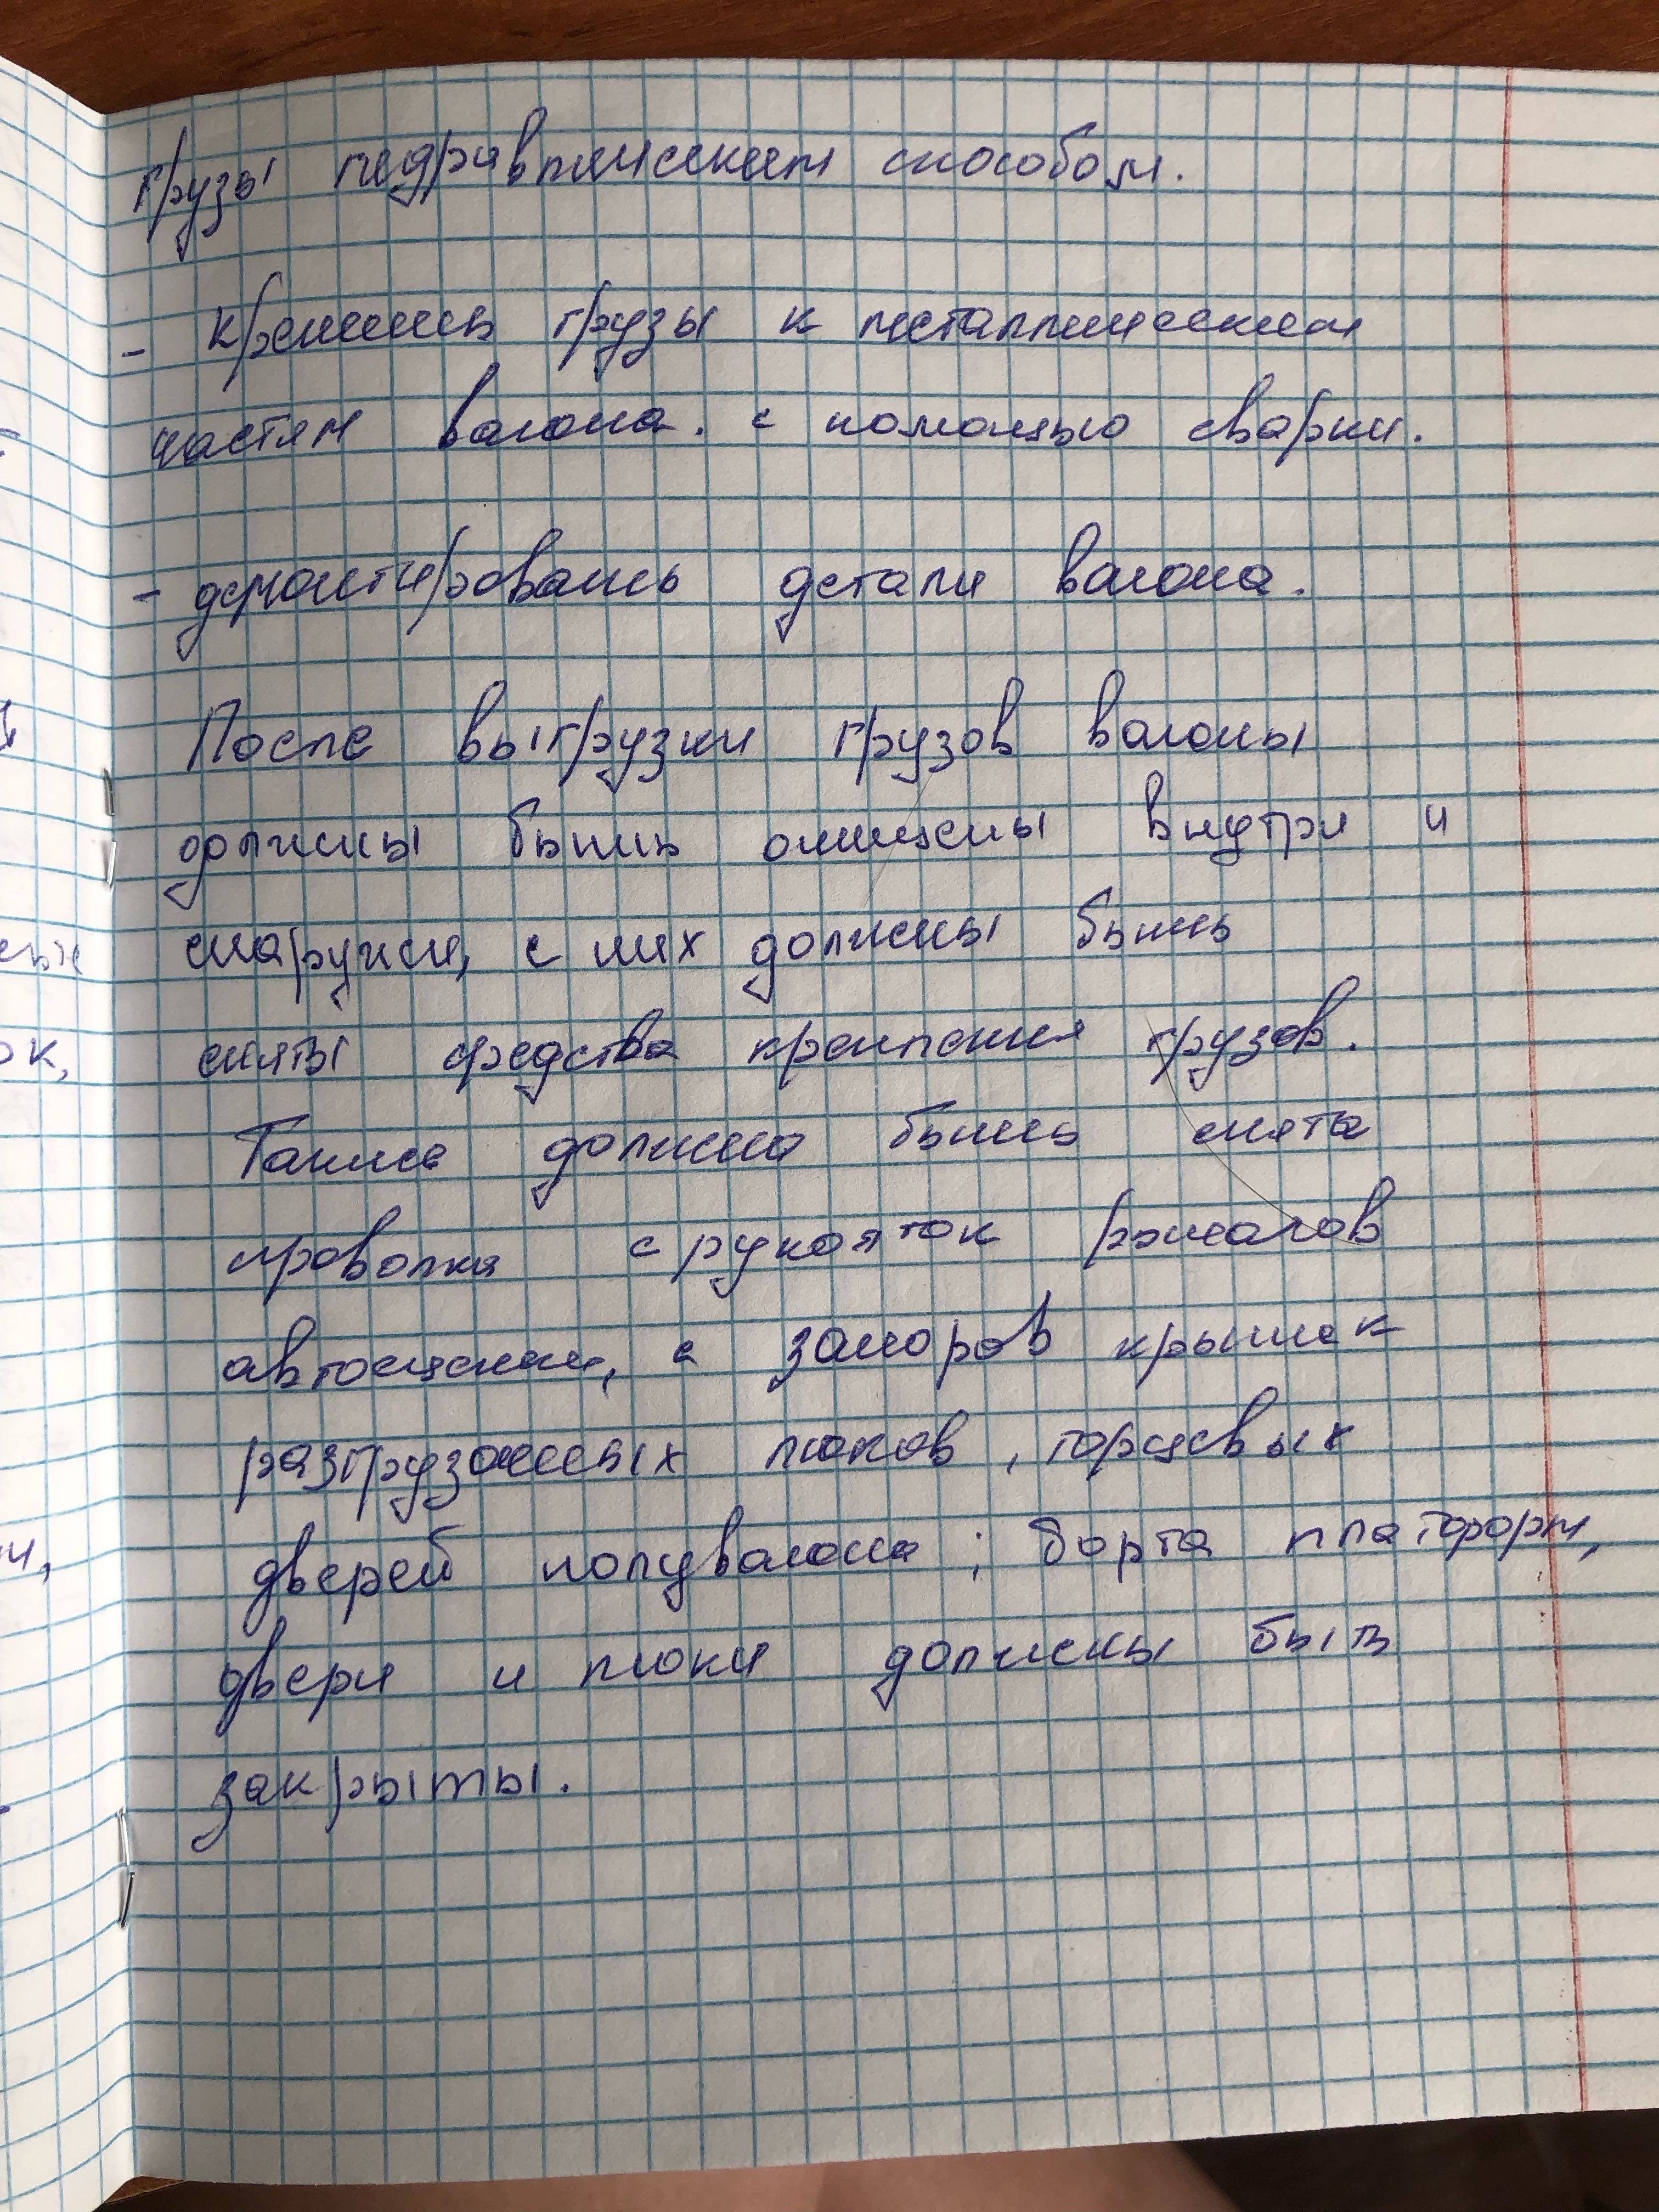 грузы гидравлическим способом.
- крепить грузы к металлическим
частям вагона. с помощью сварки.
- демонтировать детали вагона.
После выгрузки грузов вагоны
должны быть очищены внутри и
снаружи, с них должны быть
сняты средства крепления грузов.
Также должна быть снята
проволка с рукояток рычагов
автосцепки, с запоров крышек
разгрузочных люков, торцевых
дверей полувагона; борта платформ,
двери и люки должны быть
закрыты.
ок,